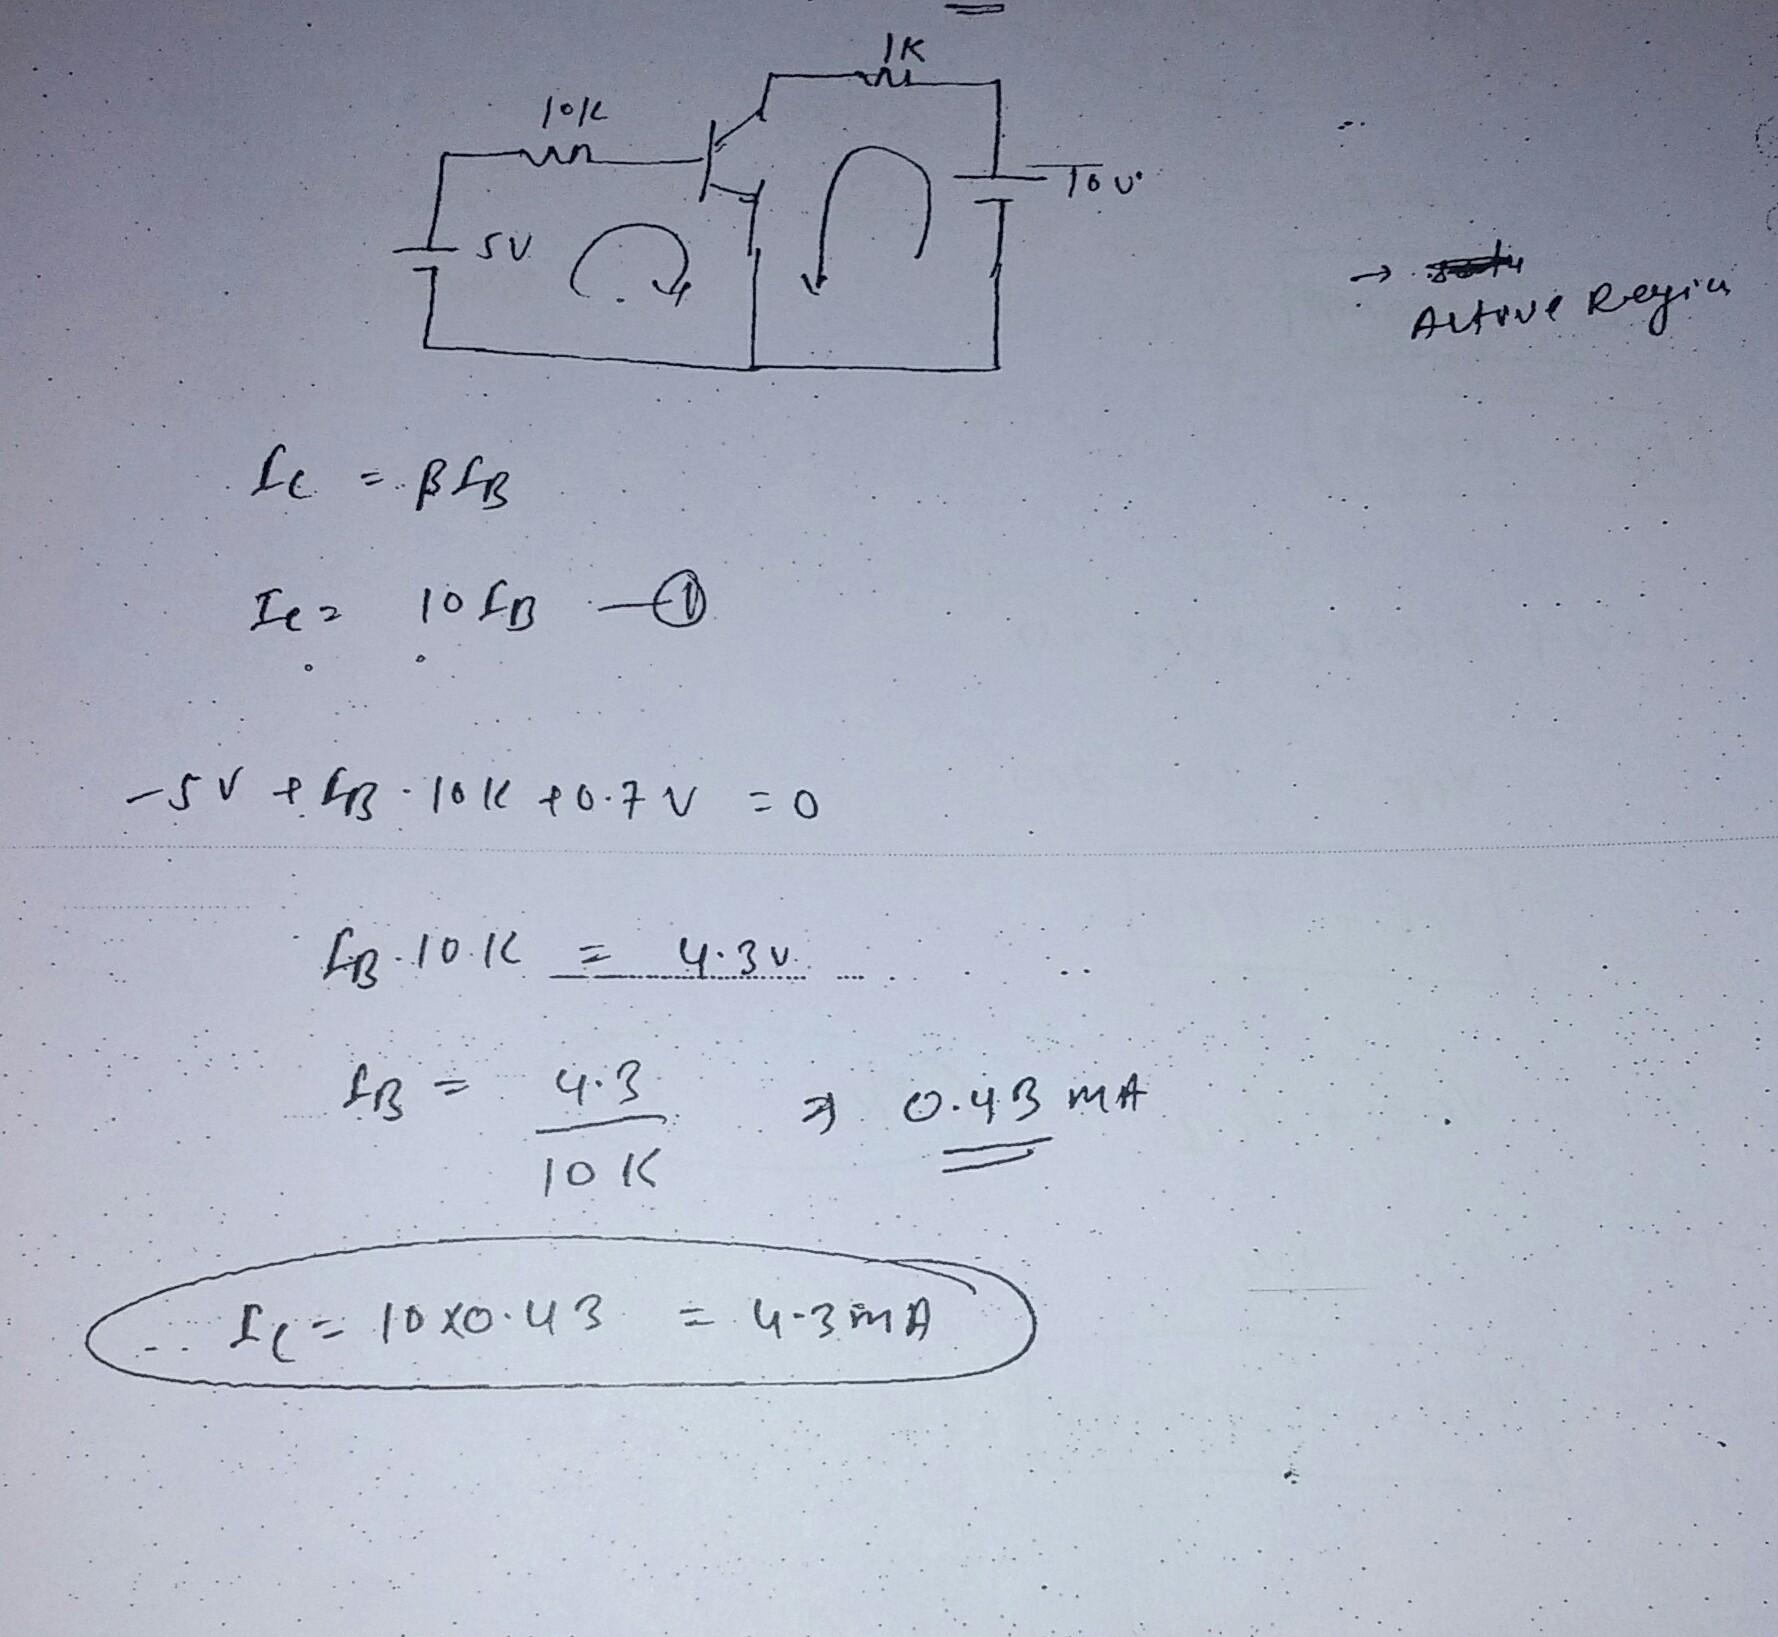 1K
10K
10V
5V
→
Active Region
Ic = βIB
Ic = 10IB —①
-5V + IB·10K + 0.7V = 0
IB·10K = 4.3V
IB = 4.3 / 10K ⇒ 0.43 mA
Ic = 10x0.43 = 4.3mA